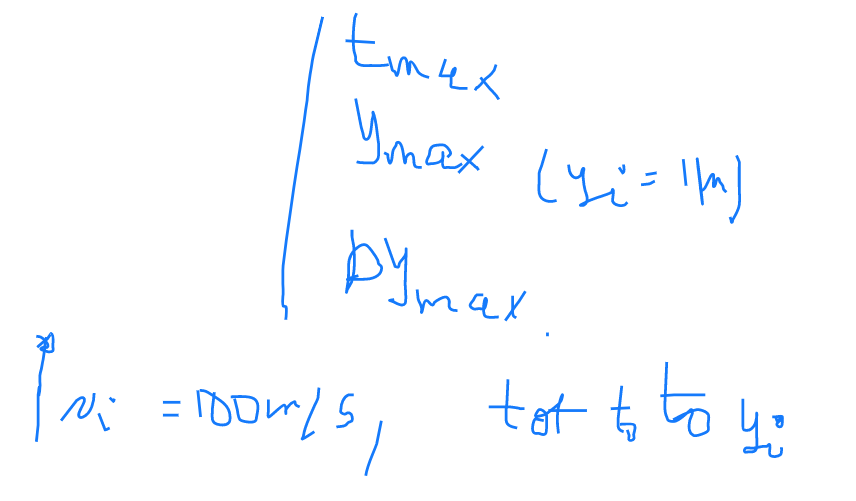 tmax
ymax (yi = 1m)
Dymax.
vi = 100m/s, tot to yi